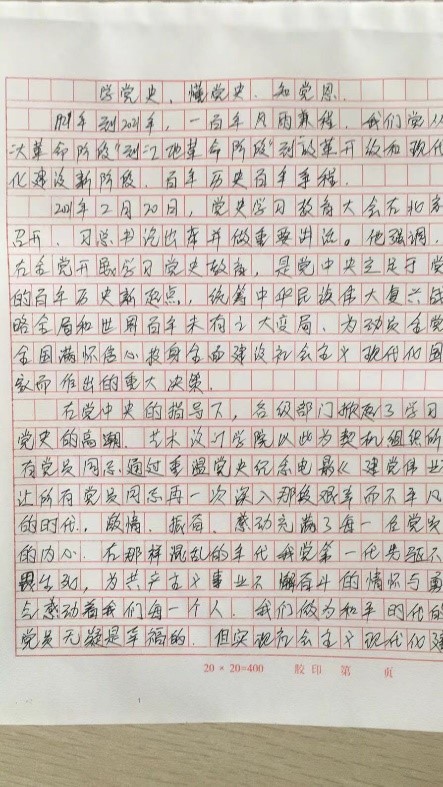 学党史、懂党史、知党恩.
1921年到2021年,一百年风雨兼程.我们党从
次革命阶段"到"土地革命阶段"到改革开放和现代
化建设新阶段.百年历史百年辛程.
2021年2月20日,党史学习教育大会在北京
召开.习总书记出席并做重要讲话。他强调,
在全党开展学习党史教育,是党中央立足于党
的百年历史新起点,统筹中华民族伟大复兴战
略全局和世界百年未有之大变局、为动员全党
全国满怀信心投身全面建设社会主义现代化国
家而作出的重大决策.
在党中央的指导下,各级部门掀起了学习
党史的高潮.艺术设计学院以此为契机组织所
有党员同志通过重温党史纪念电影《建党伟业
让所有党员同志再一次深入那段艰辛而不平凡
的时代.激情.振奋.感动充满了每一位党员
的内心.在那样混乱的年代我党第一代先驱不
畏生死,为共产主义事业不懈奋斗的情怀与勇
气感动着我们每一个人.我们做为和平时代的
党员无疑是幸福的.但实现社会主义现代化建
20×20=400 胶印 第 页